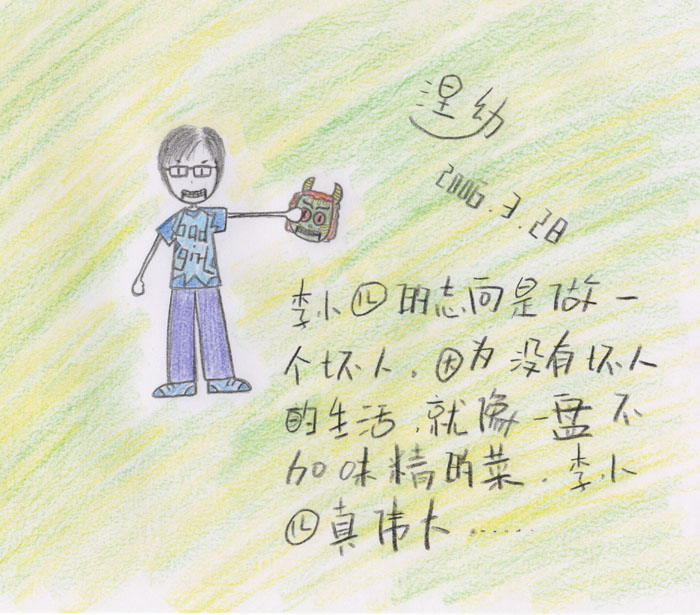 涅幼
2006.3.28
bad
girl
李小四的志向是做一
个坏人,因为没有坏人
的生活,就像一盘不
加味精的菜.李小
四真伟大......